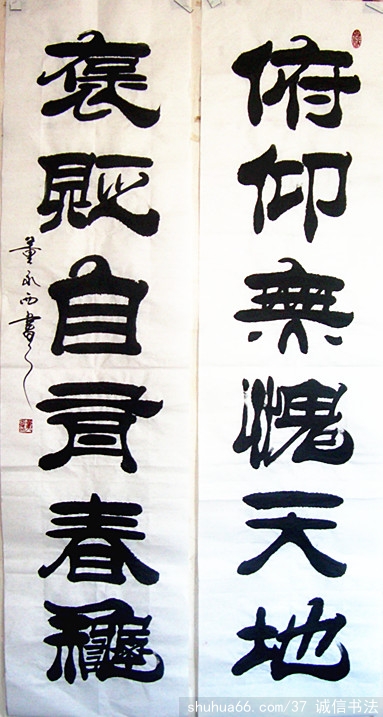 俯仰無愧天地
褒貶自有春龝
董永西書
shuhua66.com/37 诚信书法